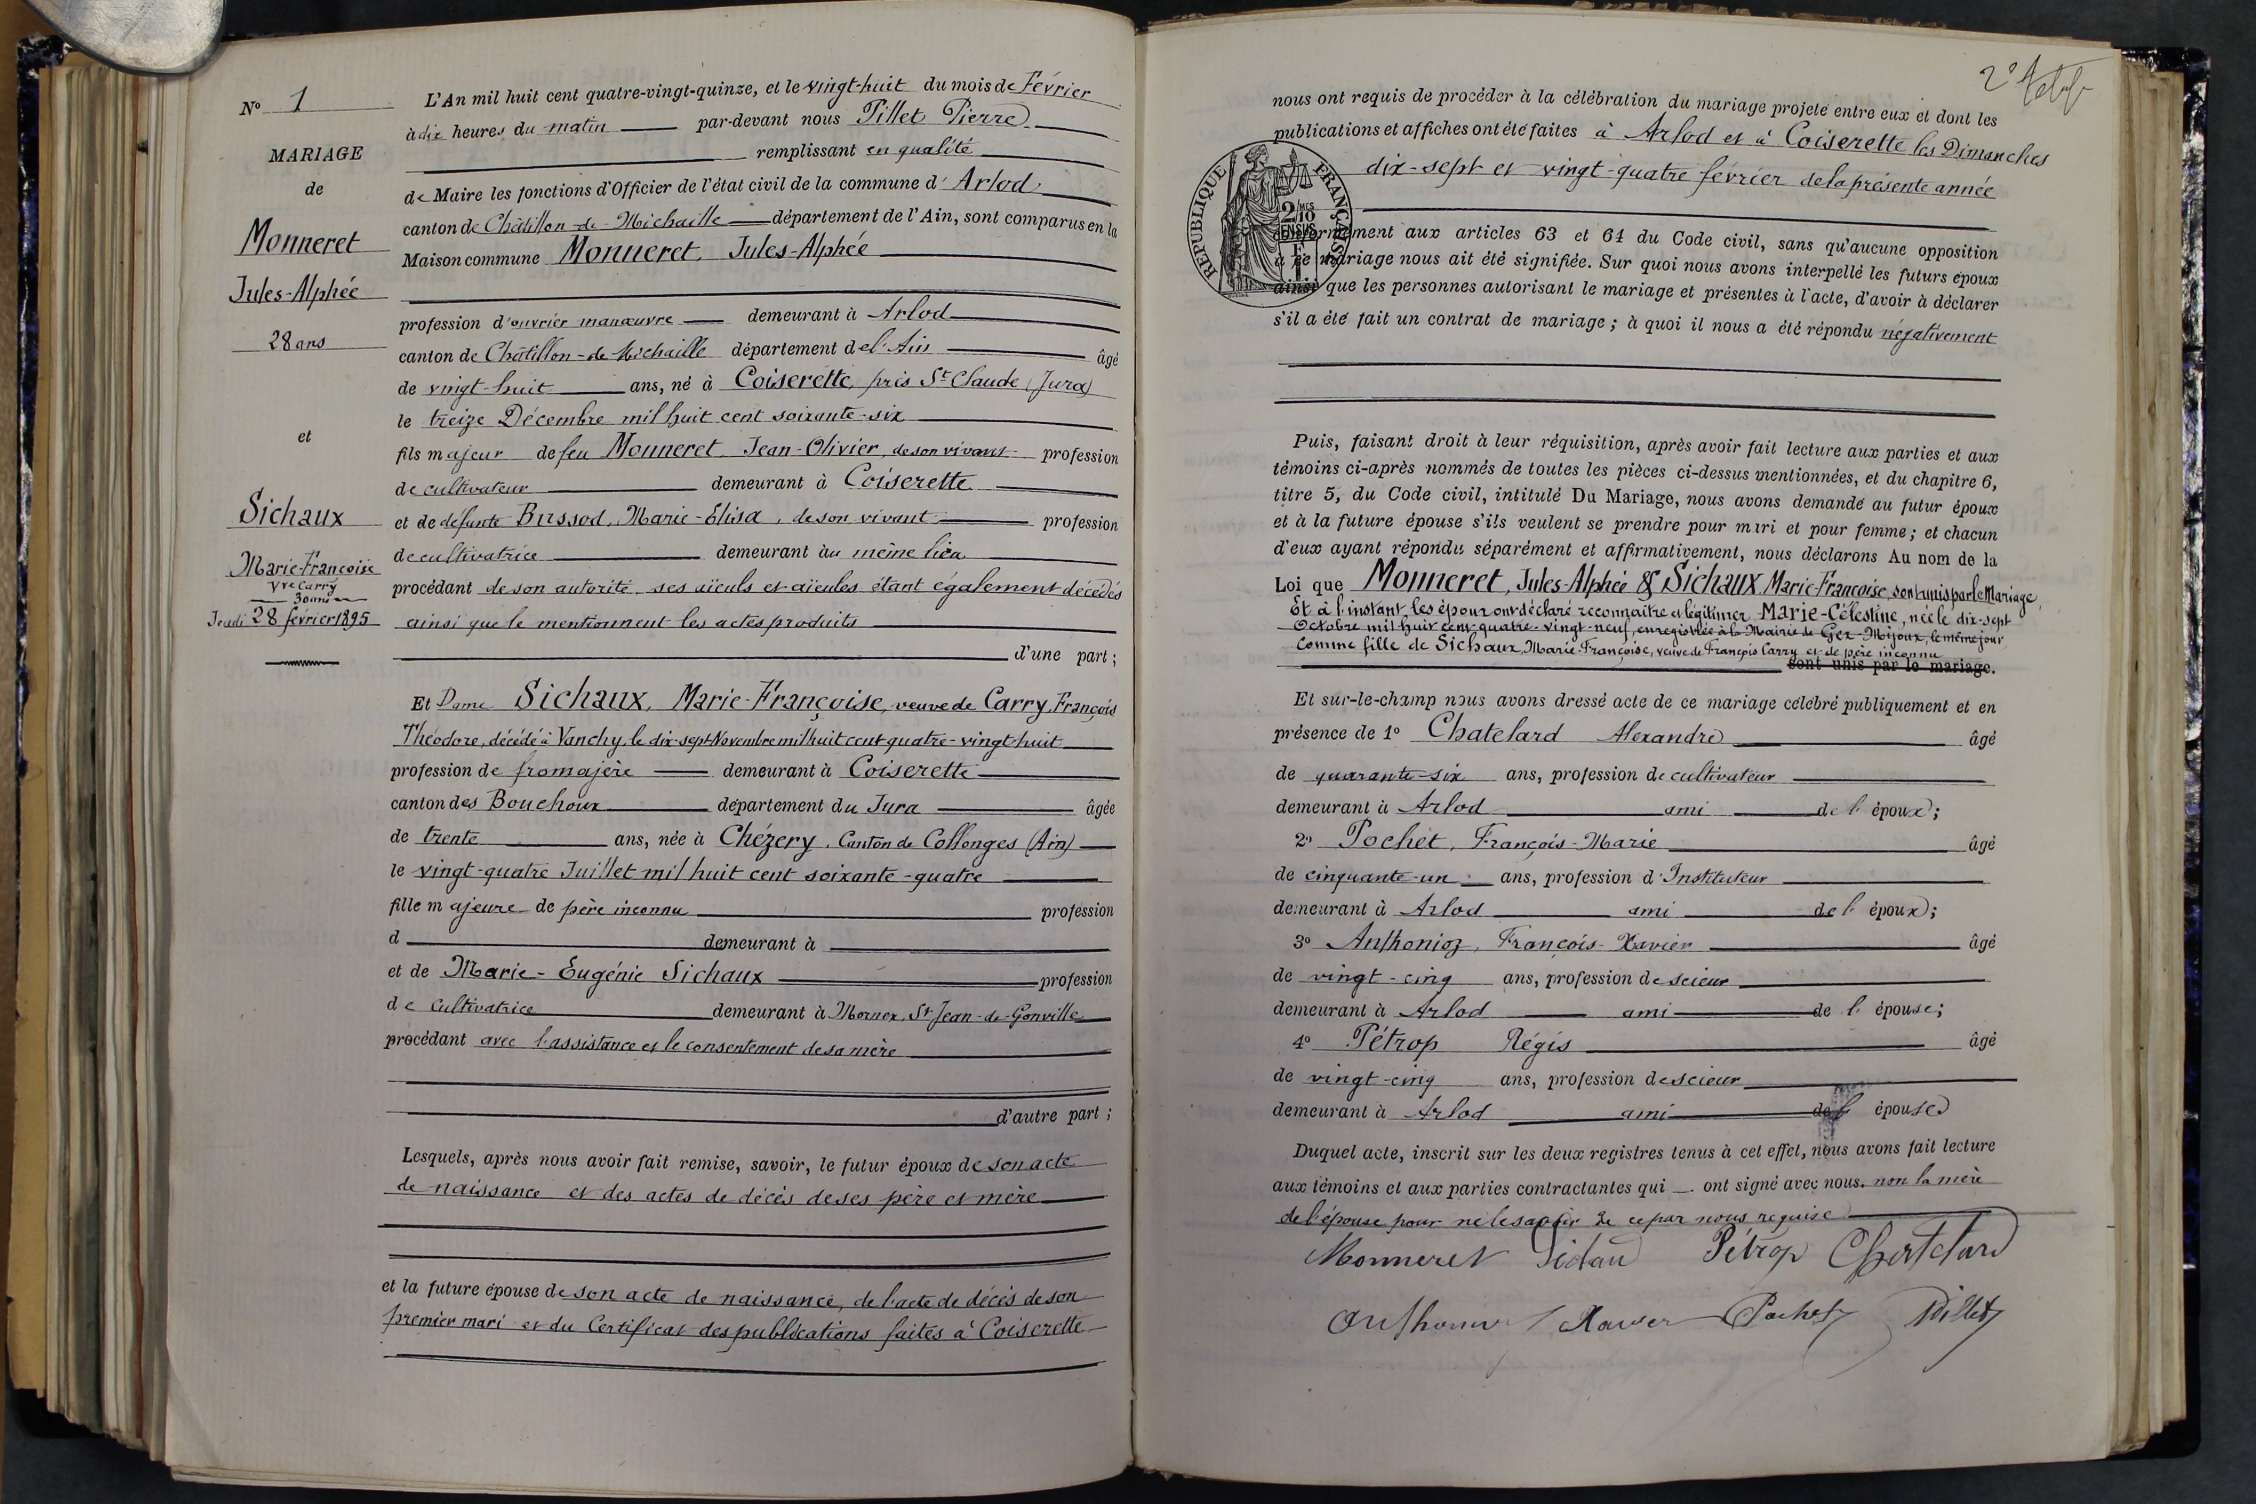 N° 1
MARIAGE
de
Monneret
Jules-Alphée
28 ans
et
Sichaux
Marie-Françoise
Vve Carry
30 ans
Jeudi 28 février 1895
L'An mil huit cent quatre-vingt-quinze, et le vingt-huit du mois de Février
à dix heures du matin par-devant nous Pillet Pierre
remplissant en qualité
de Maire les fonctions d'Officier de l'état civil de la commune d'Arlod
canton de Châtillon-de-Michaille département de l'Ain, sont comparus en la
Maison commune Monneret, Jules-Alphée
profession d'ouvrier manœuvre demeurant à Arlod
canton de Châtillon-de-Michaille département de l'Ain âgé
de vingt-huit ans, né à Coiserette, près St Claude (Jura)
le treize Décembre mil huit cent soixante-six
fils majeur de feu Monneret Jean-Olivier, de son vivant profession
de cultivateur demeurant à Coiserette
et de défunte Bussod, Marie-Elisa, de son vivant profession
de cultivatrice demeurant au même lieu
procédant de son autorité ses aïeuls et aïeules étant également décédés
ainsi que le mentionnent les actes produits
d'une part;
Et Dame Sichaux, Marie-Françoise, veuve de Carry, François
Théodore, décédé à Vanchy, le dix-sept Novembre mil huit cent quatre-vingt huit
profession de fromagère demeurant à Coiserette
canton des Bouchoux département du Jura âgée
de trente ans, née à Chézery, Canton de Collonges (Ain)
le vingt-quatre Juillet mil huit cent soixante-quatre
fille majeure de père inconnu profession
d demeurant à
et de Marie-Eugénie Sichaux profession
de cultivatrice demeurant à Mornex, St Jean-de-Gonville
procédant avec l'assistance et le consentement de sa mère
d'autre part;
Lesquels, après nous avoir fait remise, savoir, le futur époux de son acte
de naissance et des actes de décès de ses père et mère
et la future épouse de son acte de naissance, de l'acte de décès de son
premier mari et du Certificat des publications faites à Coiserette
2e
nous ont requis de procéder à la célébration du mariage projeté entre eux et dont les
publications et affiches ont été faites à Arlod et à Coiserette les Dimanches
dix-sept et vingt-quatre février de la présente année
RÉPUBLIQUE FRANÇAISE
2/10 MES
EN SUS
1 F
conformément aux articles 63 et 64 du Code civil, sans qu'aucune opposition
à ce mariage nous ait été signifiée. Sur quoi nous avons interpellé les futurs époux
ainsi que les personnes autorisant le mariage et présentes à l'acte, d'avoir à déclarer
s'il a été fait un contrat de mariage; à quoi il nous a été répondu négativement
Puis, faisant droit à leur réquisition, après avoir fait lecture aux parties et aux
témoins ci-après nommés de toutes les pièces ci-dessus mentionnées, et du chapitre 6,
titre 5, du Code civil, intitulé Du Mariage, nous avons demandé au futur époux
et à la future épouse s'ils veulent se prendre pour mari et pour femme; et chacun
d'eux ayant répondu séparément et affirmativement, nous déclarons Au nom de la
Loi que Monneret, Jules-Alphée & Sichaux Marie-Françoise, sont unis par le Mariage,
Et à l'instant, les époux ont déclaré reconnaître et légitimer Marie-Célestine, née le dix-sept
Octobre mil huit cent quatre-vingt-neuf, enregistrée à la Mairie de Gex-Mijoux, le même jour,
comme fille de Sichaux, Marie-Françoise, veuve de François Carry et de père inconnu
sont unis par le mariage.
Et sur-le-champ nous avons dressé acte de ce mariage célébré publiquement et en
présence de 1° Chatelard Alexandre âgé
de quarante-six ans, profession de cultivateur
demeurant à Arlod ami de l'époux;
2° Pochet, François-Marie âgé
de cinquante-un ans, profession d'Instituteur
demeurant à Arlod ami de l'époux;
3° Anthonioz, François-Xavier âgé
de vingt-cinq ans, profession de scieur
demeurant à Arlod ami de l'épouse;
4° Pétrop Régis âgé
de vingt-cinq ans, profession de scieur
demeurant à Arlod ami de l'épouse
Duquel acte, inscrit sur les deux registres tenus à cet effet, nous avons fait lecture
aux témoins et aux parties contractantes qui ont signé avec nous. non la mère
de l'épouse pour ne le savoir de ce par nous requise
Monneret Pétrop Chatelard
Xavier Pochet Pillet